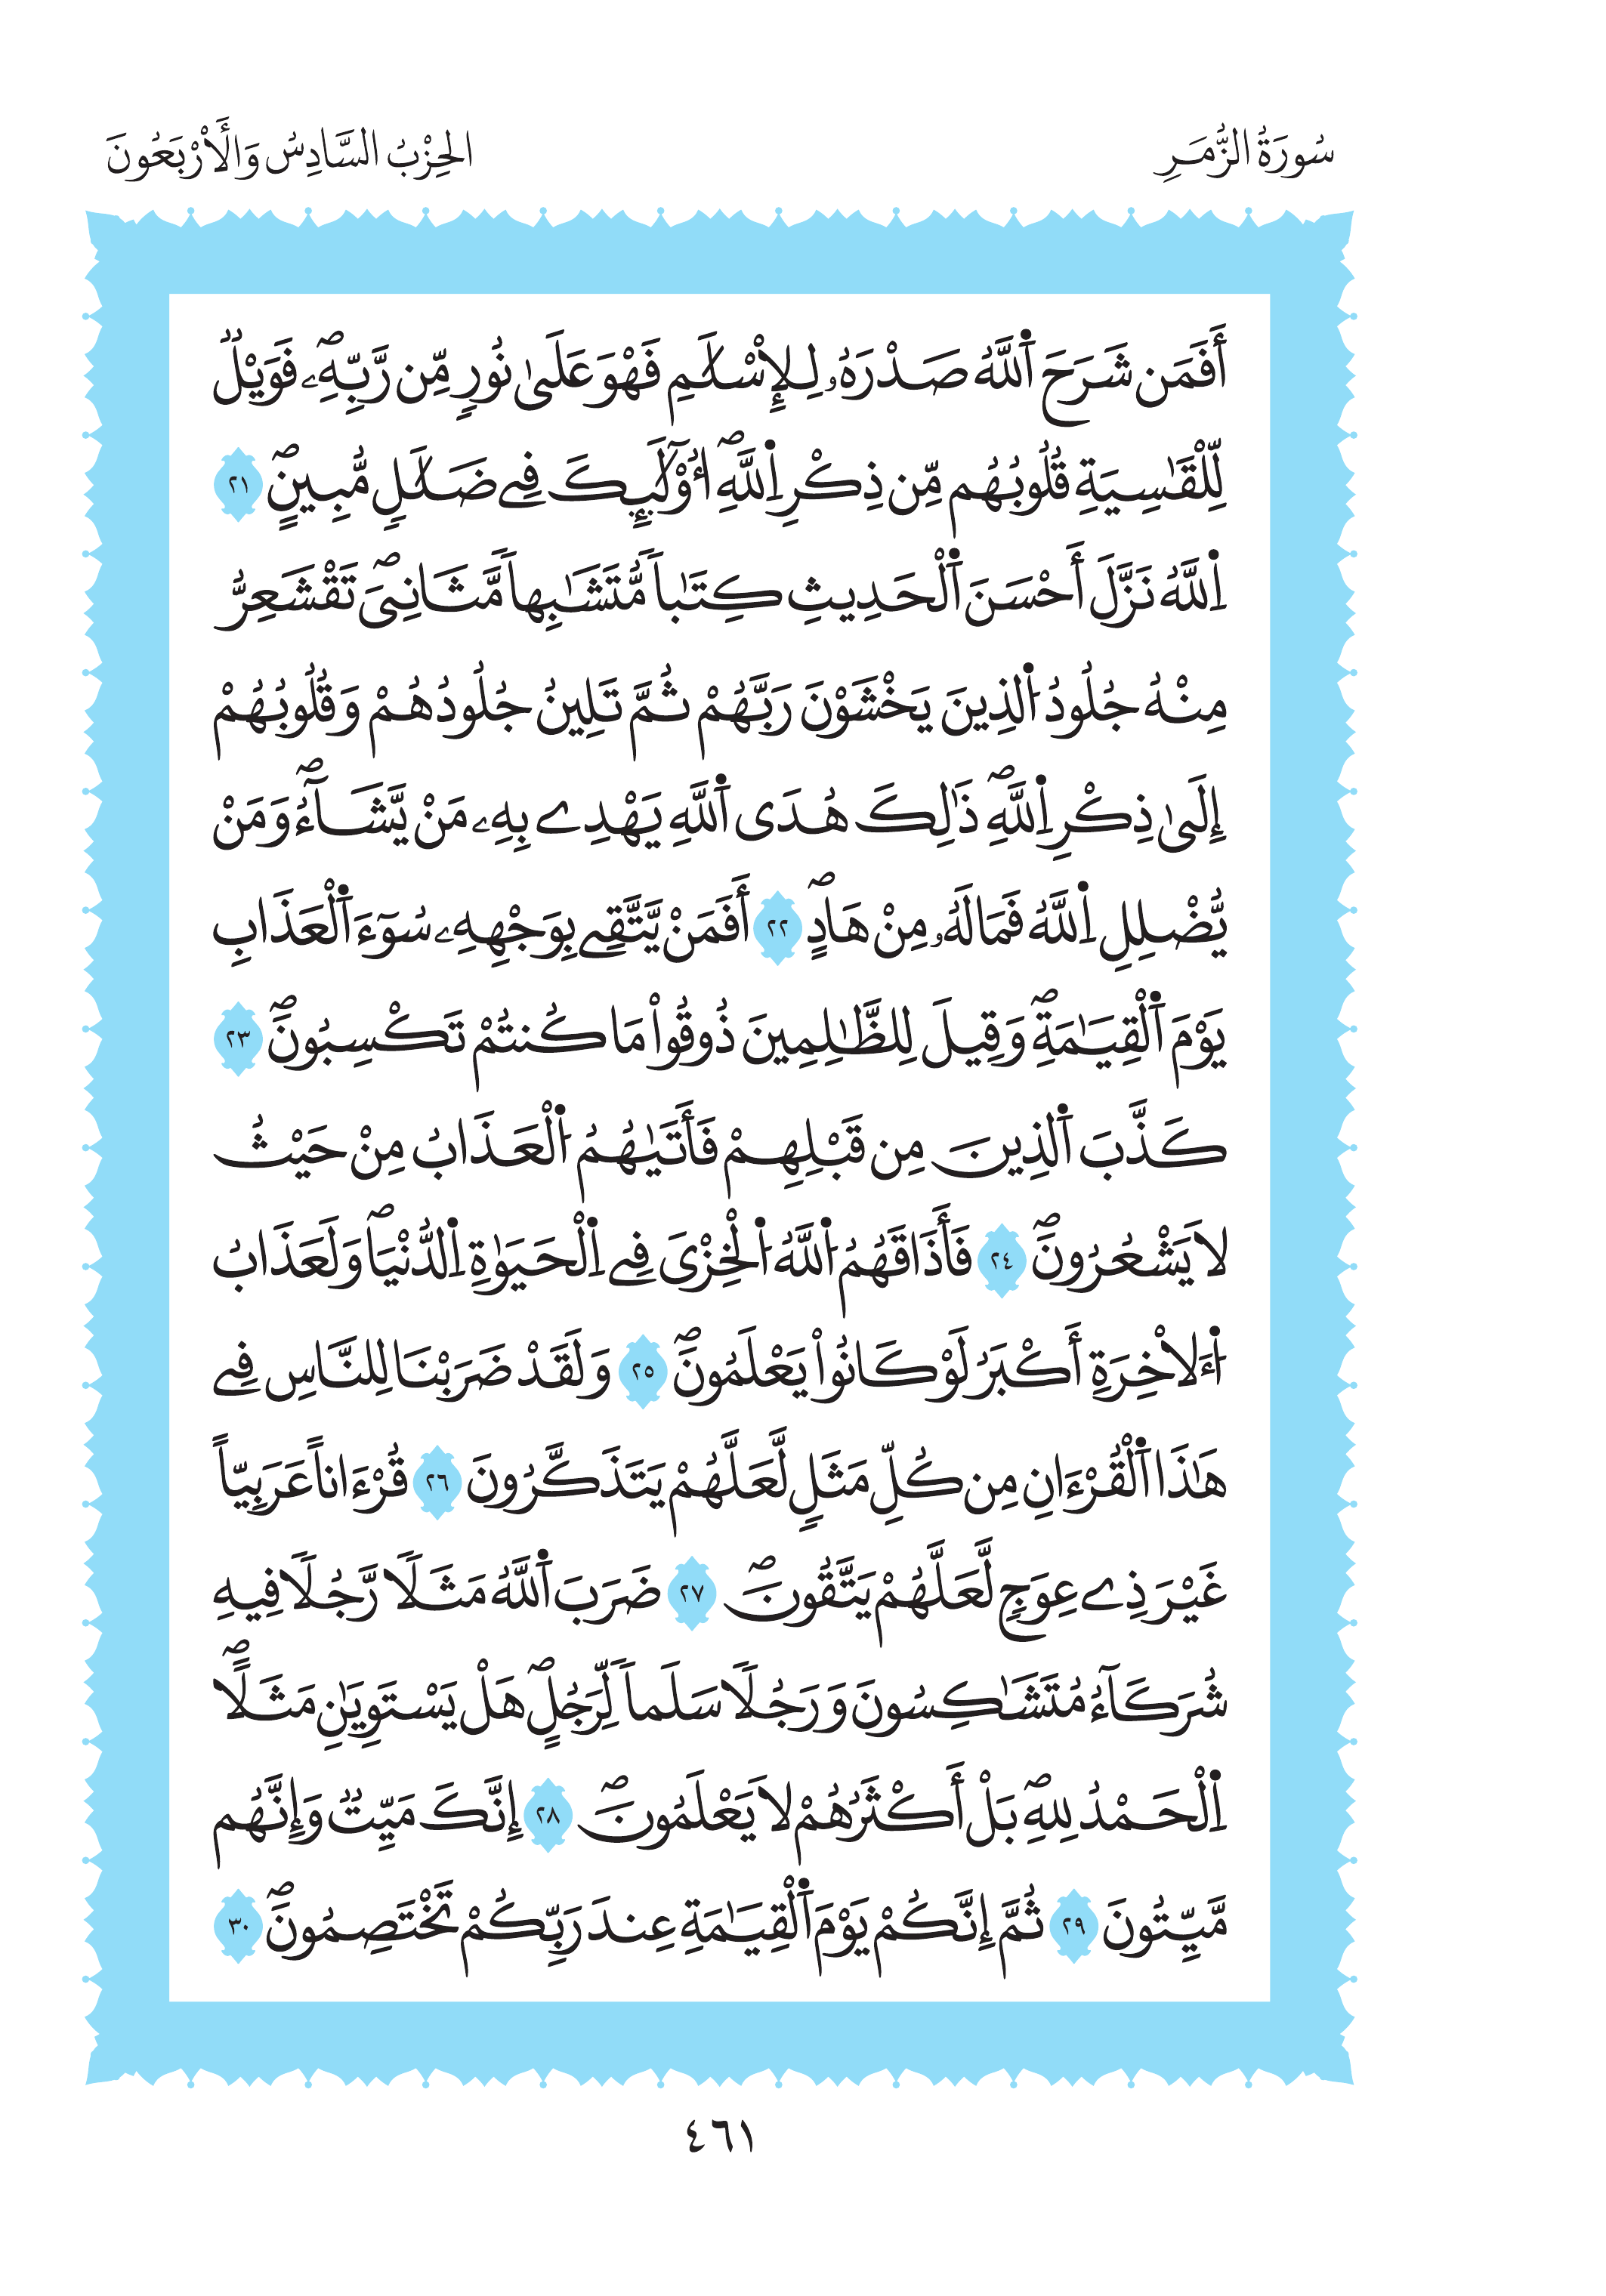 سُورَةُ الزُّمَرِ
الحِزْبُ السَّادِسُ وَالْأَرْبَعُونَ
أَفَمَن شَرَحَ اَ۬للَّهُ صَدْرَهُۥ لِلْإِسْلَٰمِ فَهْوَ عَلَىٰ نُورٍ مِّن رَّبِّهِۦۖ فَوَيْلٌ
لِّلْقَٰسِيَةِ قُلُوبُهُم مِّن ذِكْرِ اِ۬للَّهِۖ أُوْلَٰٓئِكَ فِے ضَلَٰلٍ مُّبِينٍۖ ٢١
اِ۬للَّهُ نَزَّلَ أَحْسَنَ اَ۬لْحَدِيثِ كِتَٰباٗ مُّتَشَٰبِهاٗ مَّثَانِيَۖ تَقْشَعِرُّ
مِنْهُ جُلُودُ اُ۬لذِينَ يَخْشَوْنَ رَبَّهُمْ ثُمَّ تَلِينُ جُلُودُهُمْ وَقُلُوبُهُمْ
إِلَىٰ ذِكْرِ اِ۬للَّهِۖ ذَٰلِكَ هُدَى اَ۬للَّهِ يَهْدِے بِهِۦ مَنْ يَّشَآءُۖ وَمَنْ
يُّضْلِلِ اِ۬للَّهُ فَمَا لَهُۥ مِنْ هَادٍۖ ٢٢ أَفَمَنْ يَّتَّقِے بِوَجْهِهِۦ سُوٓءَ اَ۬لْعَذَابِ
يَوْمَ اَ۬لْقِيَٰمَةِۖ وَقِيلَ لِلظَّٰلِمِينَ ذُوقُواْ مَا كُنتُمْ تَكْسِبُونَۖ ٢٣
كَذَّبَ اَ۬لذِينَ مِن قَبْلِهِمْ فَأَتَىٰهُمُ اُ۬لْعَذَابُ مِنْ حَيْثُ
لَا يَشْعُرُونَۖ ٢٤ فَأَذَاقَهُمُ اُ۬للَّهُ اُ۬لْخِزْيَ فِے اِ۬لْحَيَوٰةِ اِ۬لدُّنْيَاۖ وَلَعَذَابُ
اُ۬لَاخِرَةِ أَكْبَرُ لَوْ كَانُواْ يَعْلَمُونَۖ ٢٥ وَلَقَدْ ضَرَبْنَا لِلنَّاسِ فِے
هَٰذَا اَ۬لْقُرْءَانِ مِن كُلِّ مَثَلٍ لَّعَلَّهُمْ يَتَذَكَّرُونَ ٢٦ قُرْءَاناً عَرَبِيّاً
غَيْرَ ذِے عِوَجٍ لَّعَلَّهُمْ يَتَّقُونَۖ ٢٧ ضَرَبَ اَ۬للَّهُ مَثَلاٗ رَّجُلاٗ فِيهِ
شُرَكَآءُ مُتَشَٰكِسُونَ وَرَجُلاٗ سَلَماٗ لِّرَجُلٍۖ هَلْ يَسْتَوِيَٰنِ مَثَلاًۖ
اِ۬لْحَمْدُ لِلهِۖ بَلْ أَكْثَرُهُمْ لَا يَعْلَمُونَۖ ٢٨ إِنَّكَ مَيِّتٌ وَإِنَّهُم
مَّيِّتُونَ ٢٩ ثُمَّ إِنَّكُمْ يَوْمَ اَ۬لْقِيَٰمَةِ عِندَ رَبِّكُمْ تَخْتَصِمُونَۖ ٣٠
٤٦١